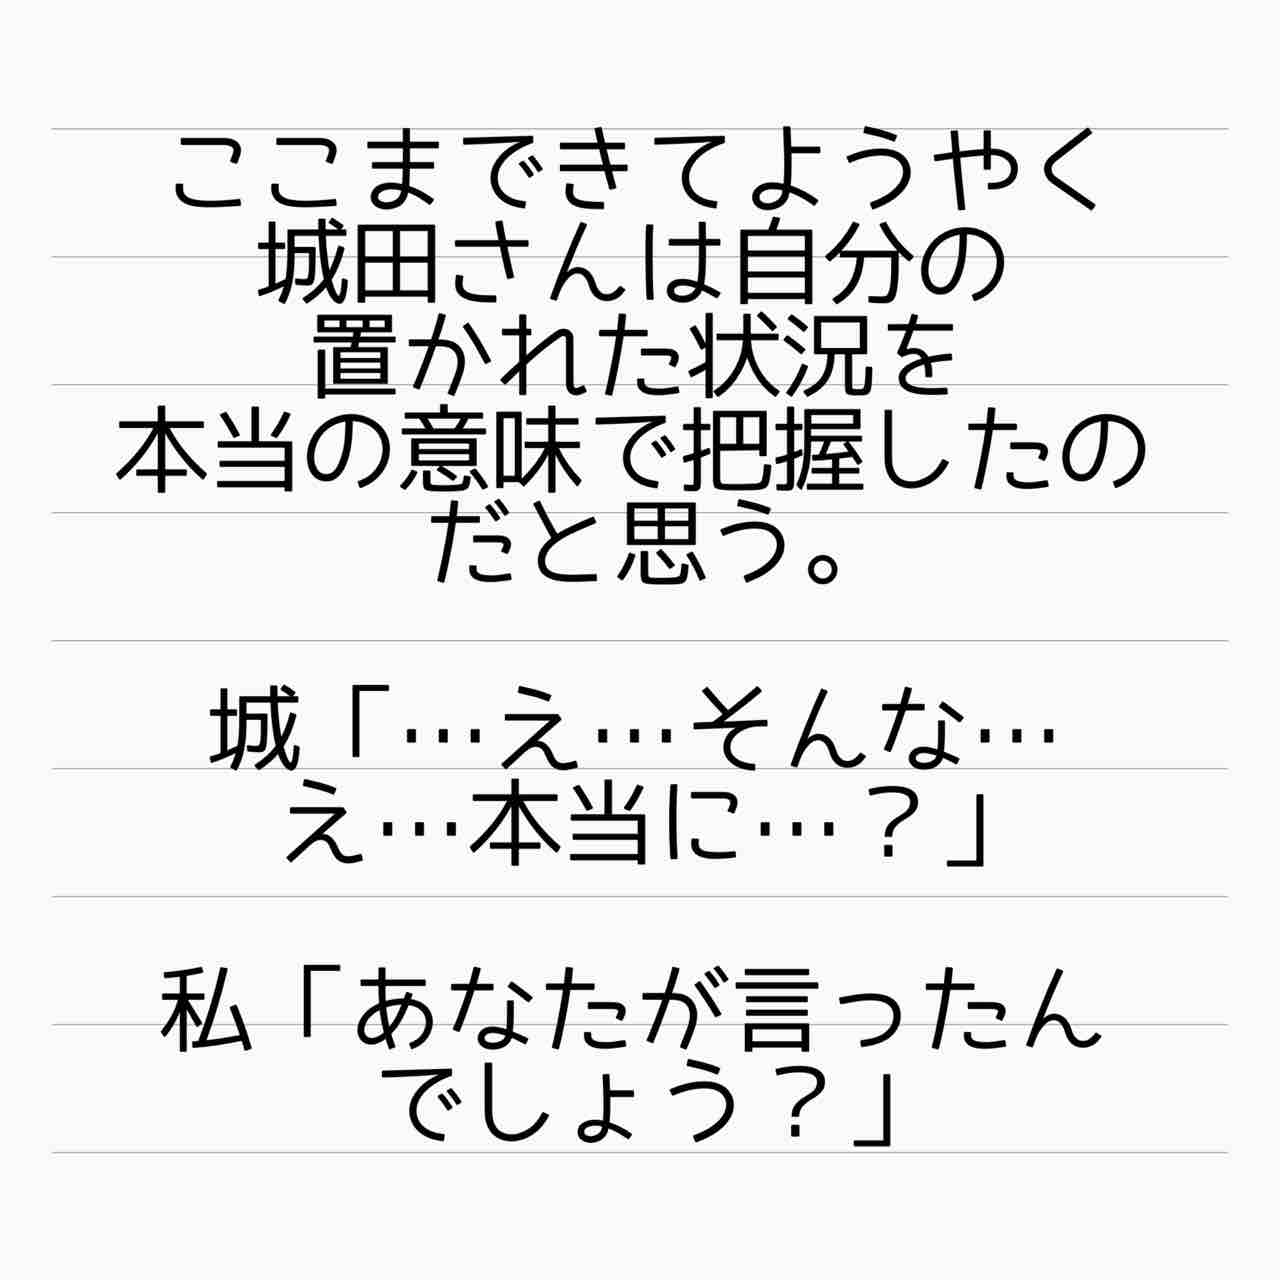 ここまできてようやく
城田さんは自分の
置かれた状況を
本当の意味で把握したの
だと思う。
城「…え…そんな…
え…本当に…？」
私「あなたが言ったん
でしょう？」